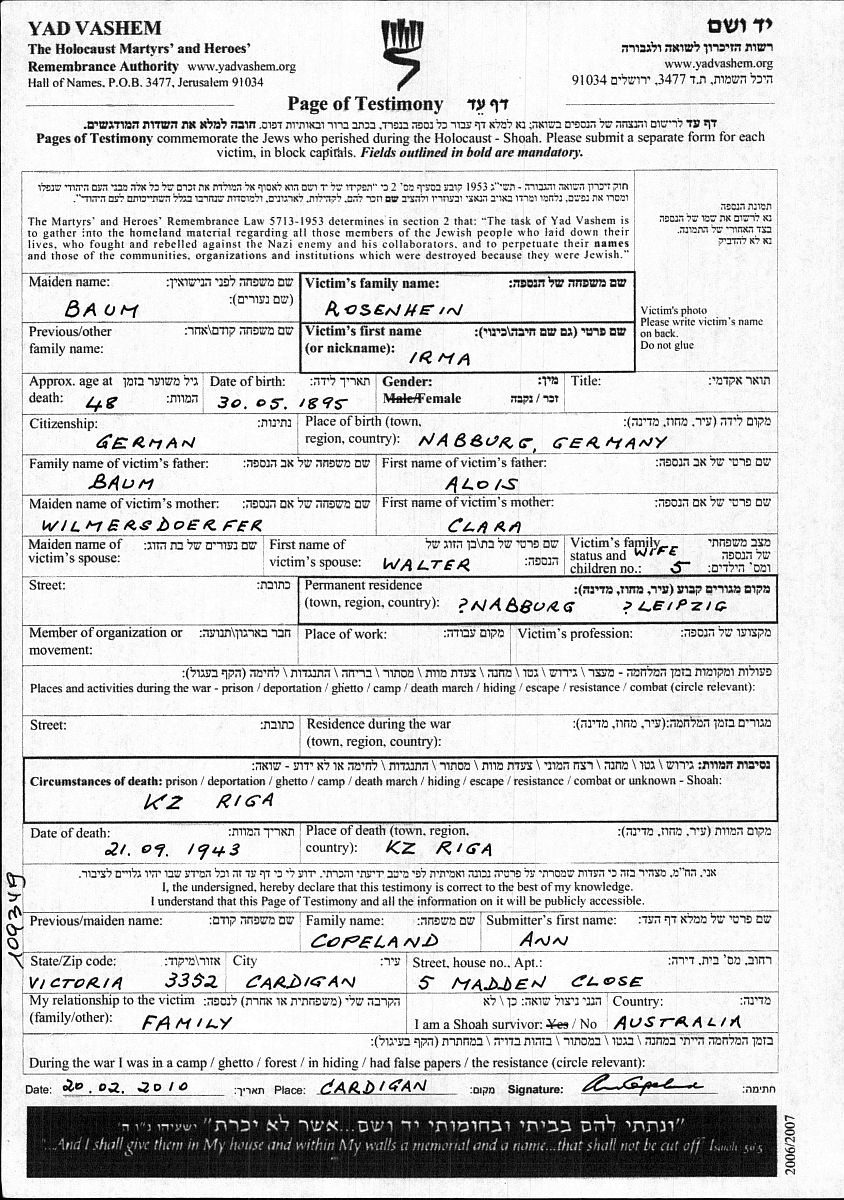 YAD VASHEM
The Holocaust Martyrs' and Heroes'
Remembrance Authority www.yadvashem.org
Hall of Names, P.O.B. 3477, Jerusalem 91034
יד ושם
רשות הזיכרון לשואה ולגבורה
www.yadvashem.org
היכל השמות, ת.ד 3477, ירושלים 91034
Page of Testimony דף עד
דף עד לרישום והנצחה של הנספים בשואה; נא למלא דף עבור כל נספה בנפרד, בכתב ברור ובאותיות דפוס. חובה למלא את השדות המודגשים.
Pages of Testimony commemorate the Jews who perished during the Holocaust - Shoah. Please submit a separate form for each
victim, in block capitals. Fields outlined in bold are mandatory.
חוק זיכרון השואה והגבורה - תשי"ג 1953 קובע בסעיף מס' 2 כי "תפקידו של יד ושם הוא לאסוף אל המולדת את זכרם של כל אלה מבני העם היהודי שנפלו
ומסרו את נפשם, נלחמו ומרדו באויב הנאצי ובעוזריו ולהציב שם וזכר להם, לקהילות, לארגונים, ולמוסדות שנחרבו בגלל השתייכותם לעם היהודי".
The Martyrs' and Heroes' Remembrance Law 5713-1953 determines in section 2 that: "The task of Yad Vashem is
to gather into the homeland material regarding all those members of the Jewish people who laid down their
lives, who fought and rebelled against the Nazi enemy and his collaborators, and to perpetuate their names
and those of the communities, organizations and institutions which were destroyed because they were Jewish."
תמונת הנספה
נא לרשום את שמו של הנספה
בצד האחורי של התמונה.
נא לא להדביק
Victim's photo
Please write victim's name
on back.
Do not glue
Maiden name: שם משפחה לפני הנישואין:
(שם נעורים):
BAUM
Victim's family name: שם משפחה של הנספה:
ROSENHEIN
Previous/other שם משפחה קודם\אחר:
family name:
Victim's first name שם פרטי (גם שם חיבה\כינוי):
(or nickname): IRMA
Approx. age at גיל משוער בזמן
death: 48 המוות:
Date of birth: תאריך לידה:
30.05.1895
Gender: מין:
Male/Female זכר / נקבה
Title: תואר אקדמי:
Citizenship: נתינות:
GERMAN
Place of birth (town, מקום לידה (עיר, מחוז, מדינה):
region, country): NABBURG, GERMANY
Family name of victim's father: שם משפחה של אב הנספה:
BAUM
First name of victim's father: שם פרטי של אב הנספה:
ALOIS
Maiden name of victim's mother: שם משפחה של אם הנספה:
WILMERSDOERFER
First name of victim's mother: שם פרטי של אם הנספה:
CLARA
Maiden name of שם נעורים של בת הזוג:
victim's spouse:
First name of שם פרטי של בת\בן הזוג של
victim's spouse: WALTER הנספה:
Victim's family מצב משפחתי
status and WIFE של הנספה
children no.: 5 ומס' הילדים:
Street: כתובת:
Permanent residence מקום מגורים קבוע (עיר, מחוז, מדינה):
(town, region, country): ?NABBURG ?LEIPZIG
Member of organization or חבר בארגון\תנועה:
movement:
Place of work: מקום עבודה:
Victim's profession: מקצועו של הנספה:
פעולות ומקומות בזמן המלחמה - מעצר \ גירוש \ גטו \ מחנה \ צעדת מוות \ מסתור \ בריחה \ התנגדות \ לחימה (הקף בעגול):
Places and activities during the war - prison / deportation / ghetto / camp / death march / hiding / escape / resistance / combat (circle relevant):
Street: כתובת:
Residence during the war מגורים בזמן המלחמה:(עיר, מחוז, מדינה):
(town, region, country):
נסיבות המוות: גירוש \ גטו \ מחנה \ רצח המוני \ צעדת מוות \ מסתור \ התנגדות \ לחימה או לא ידוע - שואה:
Circumstances of death: prison / deportation / ghetto / camp / death march / hiding / escape / resistance / combat or unknown - Shoah:
KZ RIGA
Date of death: תאריך המוות:
21.09.1943
Place of death (town, region, מקום המוות (עיר, מחוז, מדינה):
country): KZ RIGA
אני, הח"מ, מצהיר בזה כי העדות שמסרתי על פרטיה נכונה ואמיתית לפי מיטב ידיעתי והכרתי. ידוע לי כי דף עד זה וכל המידע שבו יהיו גלויים לציבור.
I, the undersigned, hereby declare that this testimony is correct to the best of my knowledge.
I understand that this Page of Testimony and all the information on it will be publicly accessible.
109349
Previous/maiden name: שם משפחה קודם:
Family name: שם משפחה:
COPELAND
Submitter's first name: שם פרטי של ממלא דף העד:
ANN
State/Zip code: אזור\מיקוד:
VICTORIA 3352
City עיר:
CARDIGAN
Street, house no., Apt.: רחוב, מס' בית, דירה:
5 MADDEN CLOSE
My relationship to the victim הקרבה שלי (משפחתית או אחרת) לנספה:
(family/other): FAMILY
הנני ניצול שואה: כן \ לא
I am a Shoah survivor: Yes / No
Country: מדינה:
AUSTRALIA
בזמן המלחמה הייתי במחנה \ בגטו \ במסתור \ בזהות בדויה \ במחתרת (הקף בעיגול):
During the war I was in a camp / ghetto / forest / in hiding / had false papers / the resistance (circle relevant):
Date: 20.02.2010 תאריך: Place: CARDIGAN מקום: Signature: Ann Copeland חתימה:
"ונתתי להם בביתי ובחומותי יד ושם...אשר לא יכרת" ישעיהו נ"ו ה'
"...And I shall give them in My house and within My walls a memorial and a name...that shall not be cut off Isaiah 56:5
2006/2007